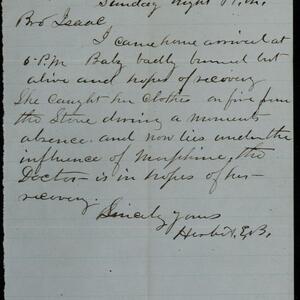 Sunday night 11 P.M.
Bro Isaac,
I came home arrived at
6 P.M Baby badly burned but
alive and hopes of recovery
She caught her clothes on fire from
the Stove during a moments
absence. and now lies under the
influence of Morphine, the
Doctor is in hopes of her
recovery.
Sincerely yours
Herbert E. B.